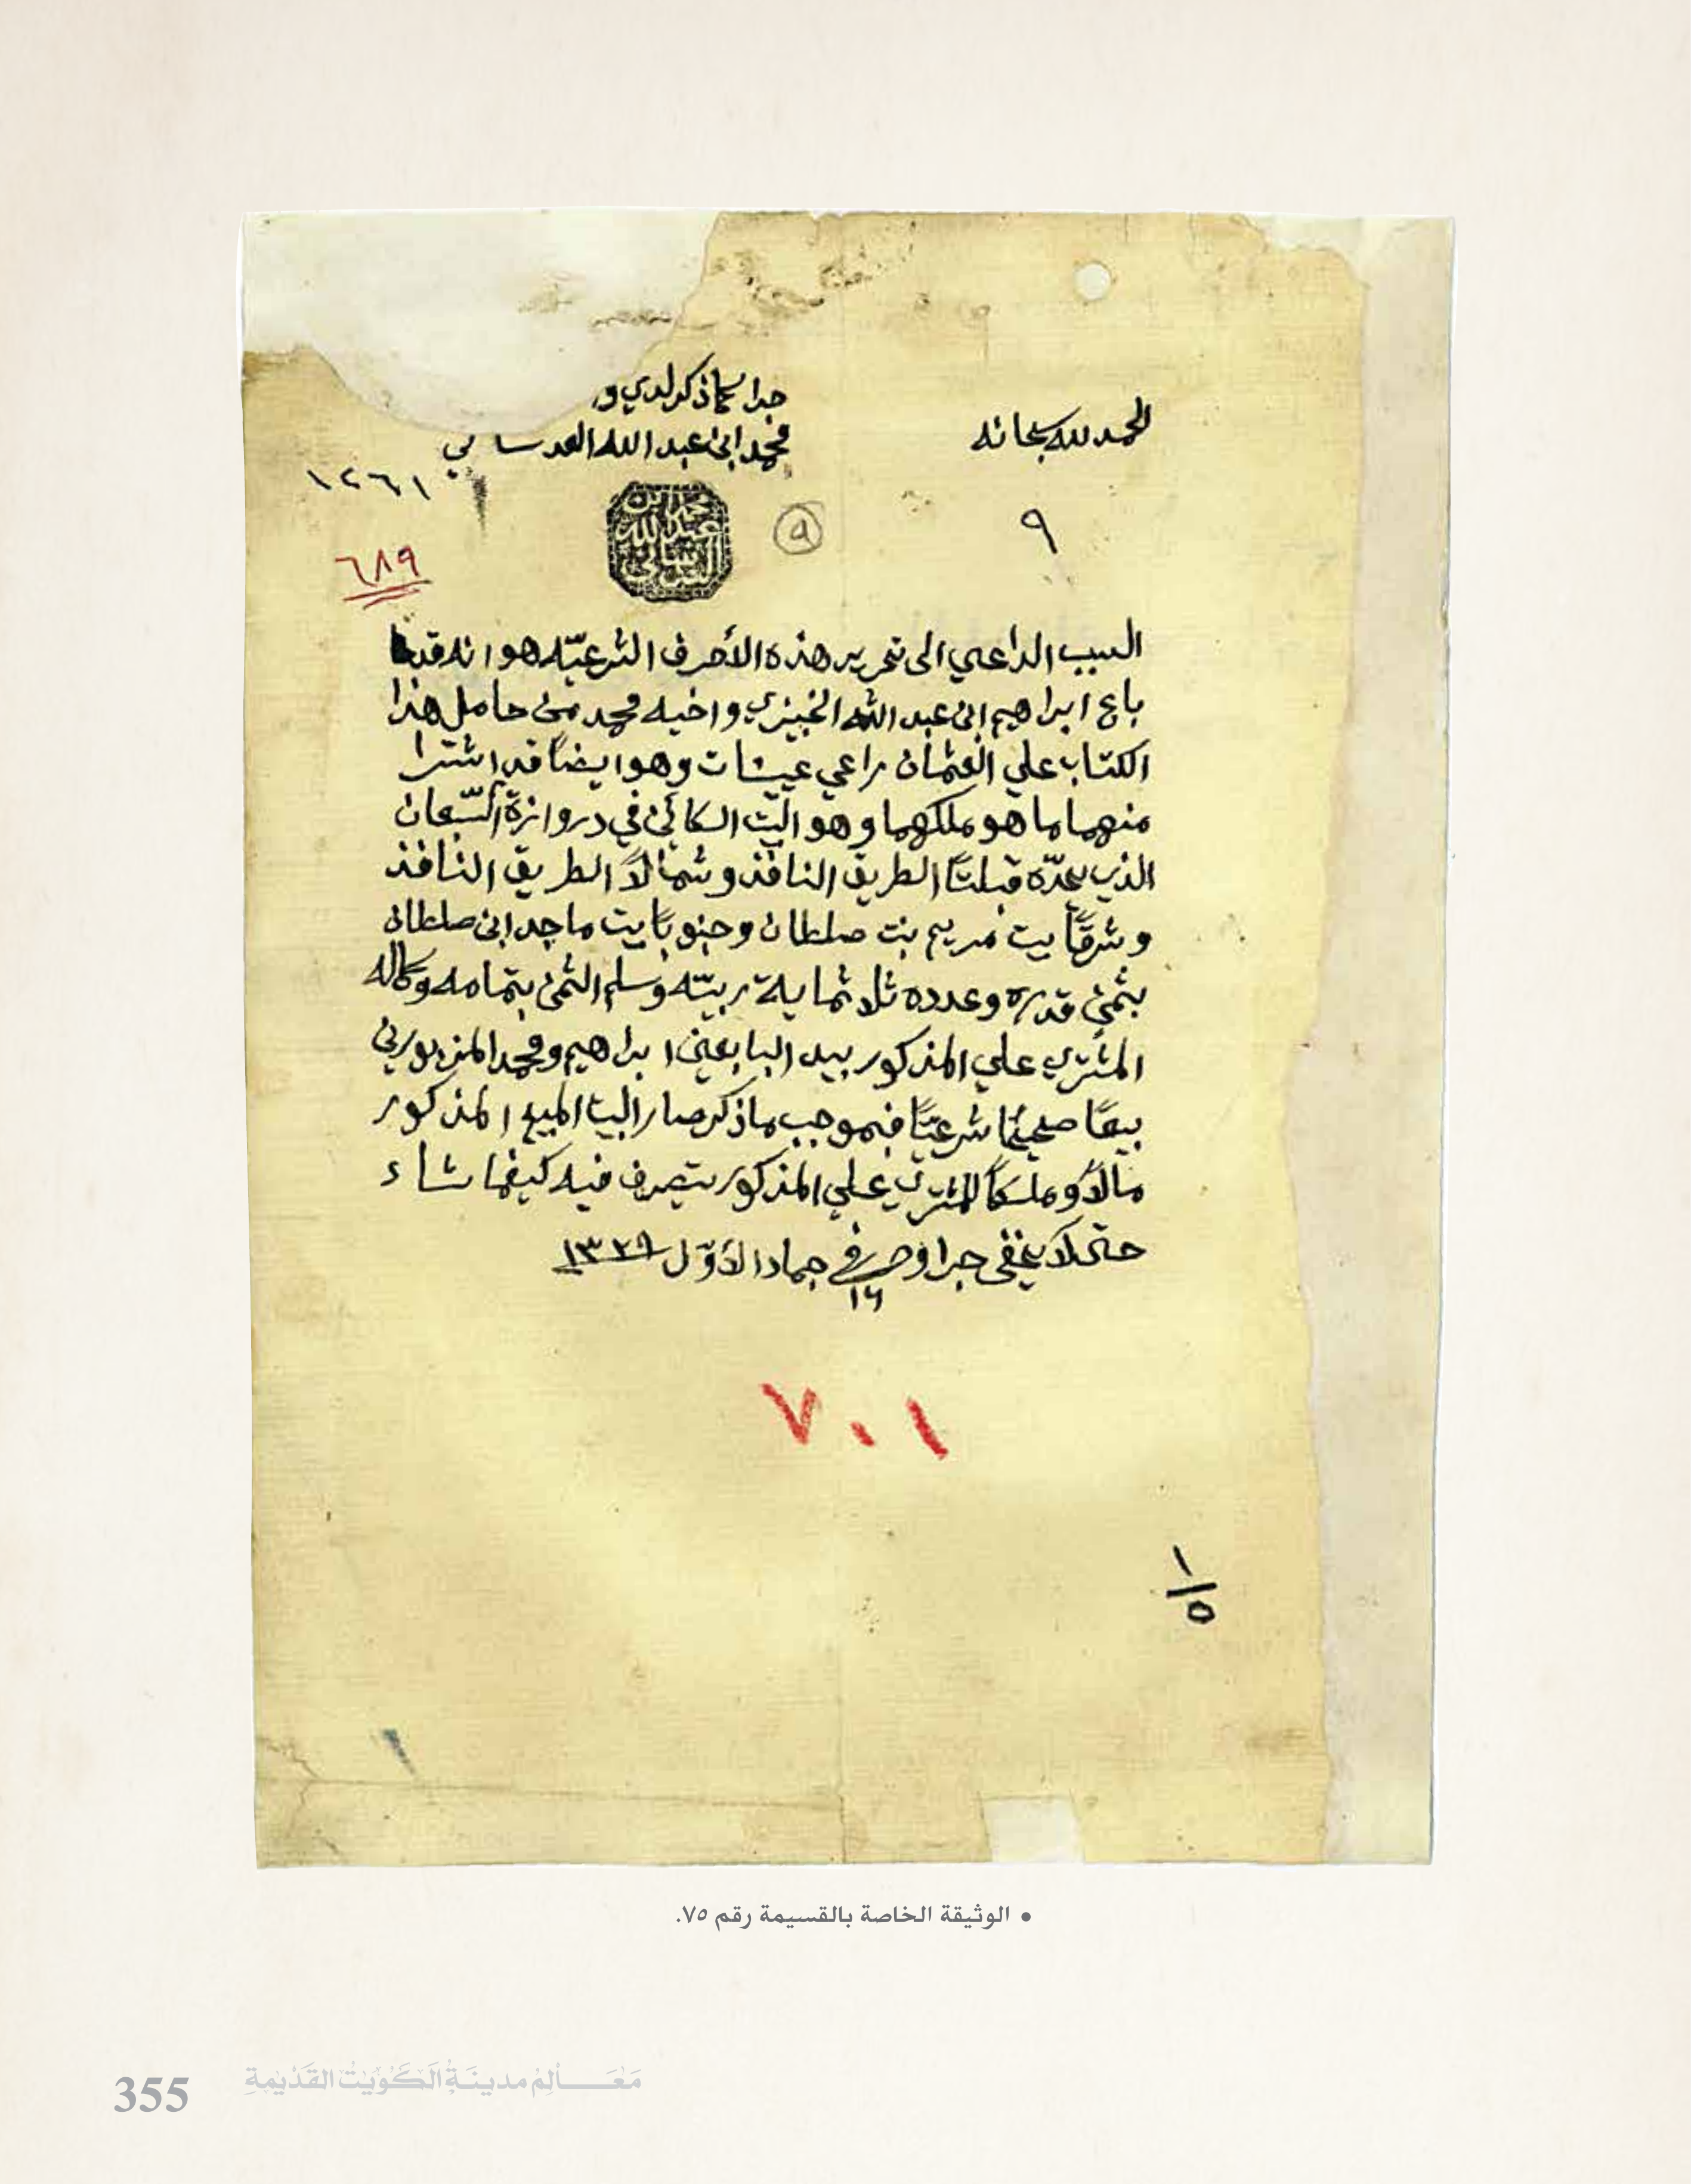 الحمد لله سبحانه
جرا كما ذكر لدي و
محمد ابن عبد الله العدساني
١٢٦١
٩
٩
محمد ابن
عبد الله
العدساني
٦٨٩
السبب الداعي الى تحرير هذه الأحرف الشرعيّه هو انه قد
باع ابراهيم ابن عبد الله الخبيزي واخيه محمد من حامل هذا
الكتاب علي العثمان راعي عيشات وهو ايضاً قد اشترا
منهما ما هو ملكهما وهو البيت الكائن في دروازة السّبعان
الذي يحدّه قبلتاً الطريق النافذ وشمالاً الطريق النافذ
وشرقاً بيت مريم بنت صلطان وجنوباً بيت ماجد ابن صلطان
بثمن قدره وعدده ثلاثماية ربيّه وسلم الثمن بتمامه وكماله
المشتري علي المذكور بيد البايعين ابراهيم ومحمد المزبورين
بيعاً صحيحاً شرعيّاً فبموجب ما ذكر صار البيت المبيع المذكور
مالاً وملكاً للمشتري علي المذكور يتصرف فيه كيفما شاء
حتى لا يخفى جرا وحرر في ١٦ جمادا الأوّل ١٣٢٩
٧٠١
١/٥
• الوثيقة الخاصة بالقسيمة رقم ٧٥.
355 مَعَالِم مدينَة الكُوَيت القَديمَة